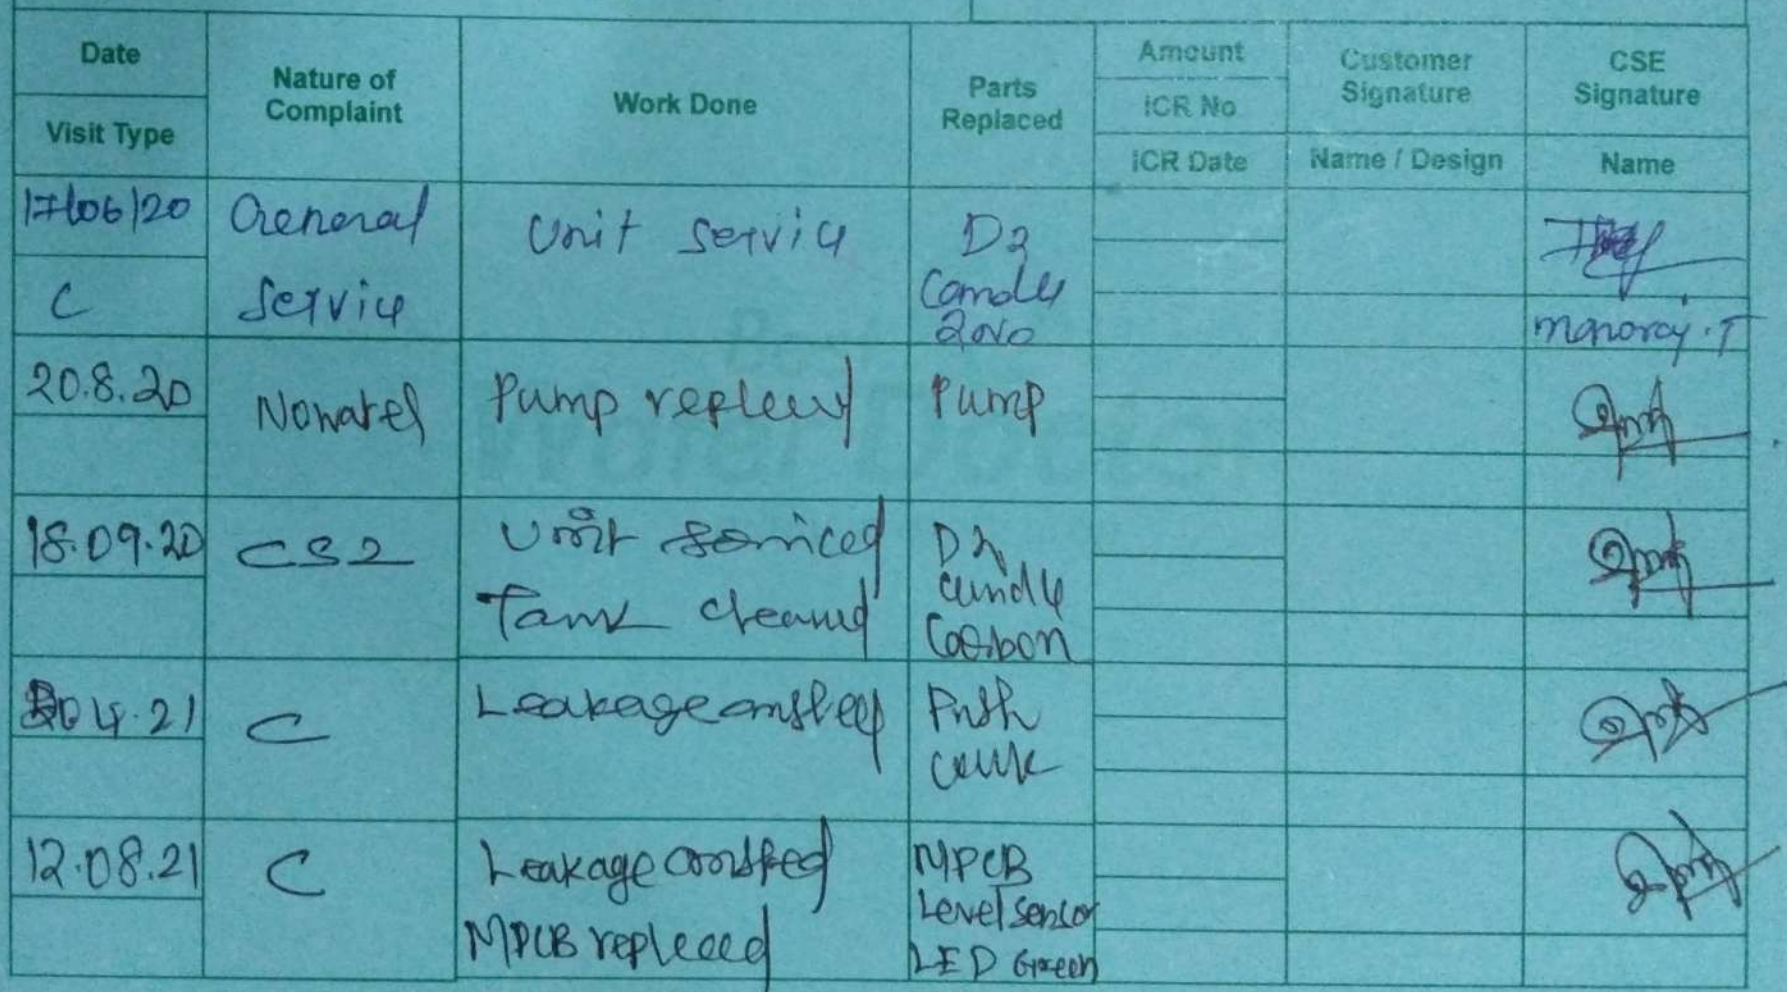 Date
Visit Type
Nature of
Complaint
Work Done
Parts
Replaced
Amount
ICR No
ICR Date
Customer
Signature
Name / Design
CSE
Signature
Name
17/06/20
C
General
Service
Unit Service
D2
Candle
2No
Manoraj.T
20.8.20
Nowater
Pump replced
Pump
18.09.20
CS2
Unit Serviced
Tank cleaned
D2
Candle
Carbon
04.21
C
Leakage
Push
12.08.21
C
Leakage
MPCB repleced
MPCB
Level sensor
LED Green